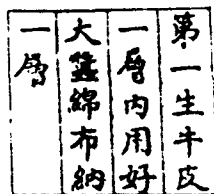 第一生牛皮
一層內用好
大藍綿布納
一層